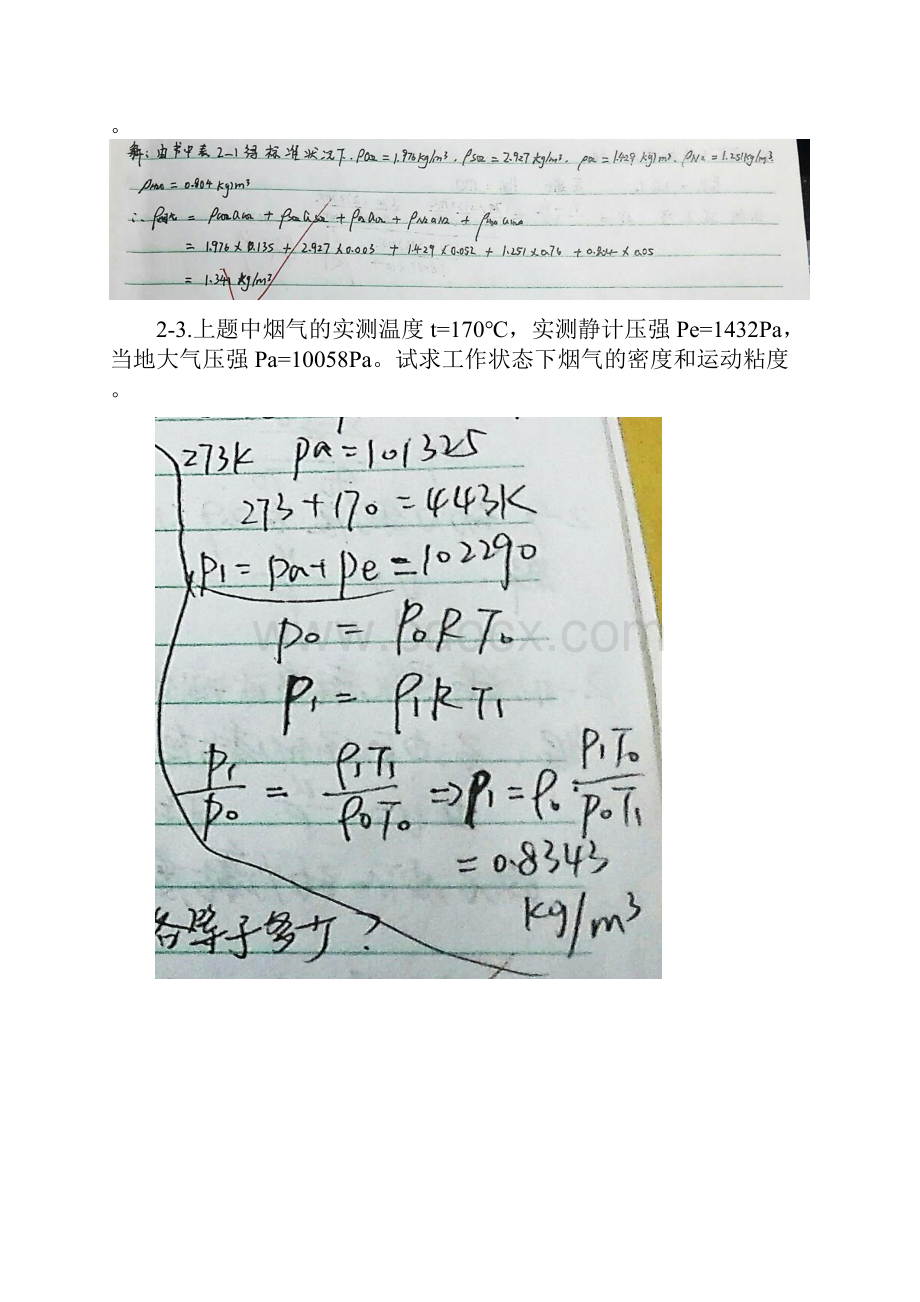 。
解：由书中表2-1得标准状况下，ρCO2=1.976kg/m³，ρSO2=2.927kg/m³，ρO2=1.429kg/m³，ρN2=1.251kg/m³
ρH2O=0.804kg/m³
∴ρ烟气=ρCO2αCO2+ρSO2αSO2+ρO2αO2+ρN2αN2+ρH2OαH2O
=1.976×0.135+2.927×0.003+1.429×0.052+1.251×0.76+0.804×0.05
=1.341kg/m³
2-3.上题中烟气的实测温度t=170℃，实测静计压强Pe=1432Pa，
当地大气压强Pa=10058Pa。试求工作状态下烟气的密度和运动粘度
。
273K pa=101325
273+170=443K
p1=pa+pe=102290
www.bdocx.com
p0=ρ0RT0
p1=ρ1RT1
p1/p0=ρ1T1/ρ0T0⇒ρ1=ρ0·p1T0/p0T1
=0.8343
kg/m³
各等于多少？